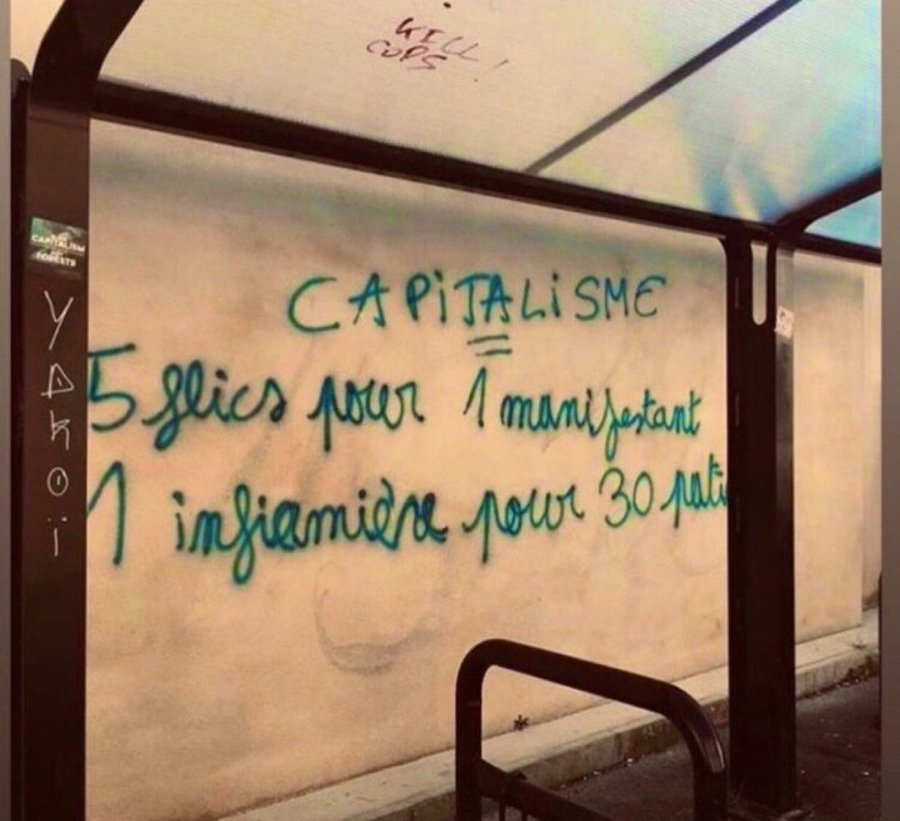 KILL
COPS!
CAPITALISME
=
5 flics pour 1 manifestant
1 infirmière pour 30 pati
CAPITALISM
FORESTS
YAKOï